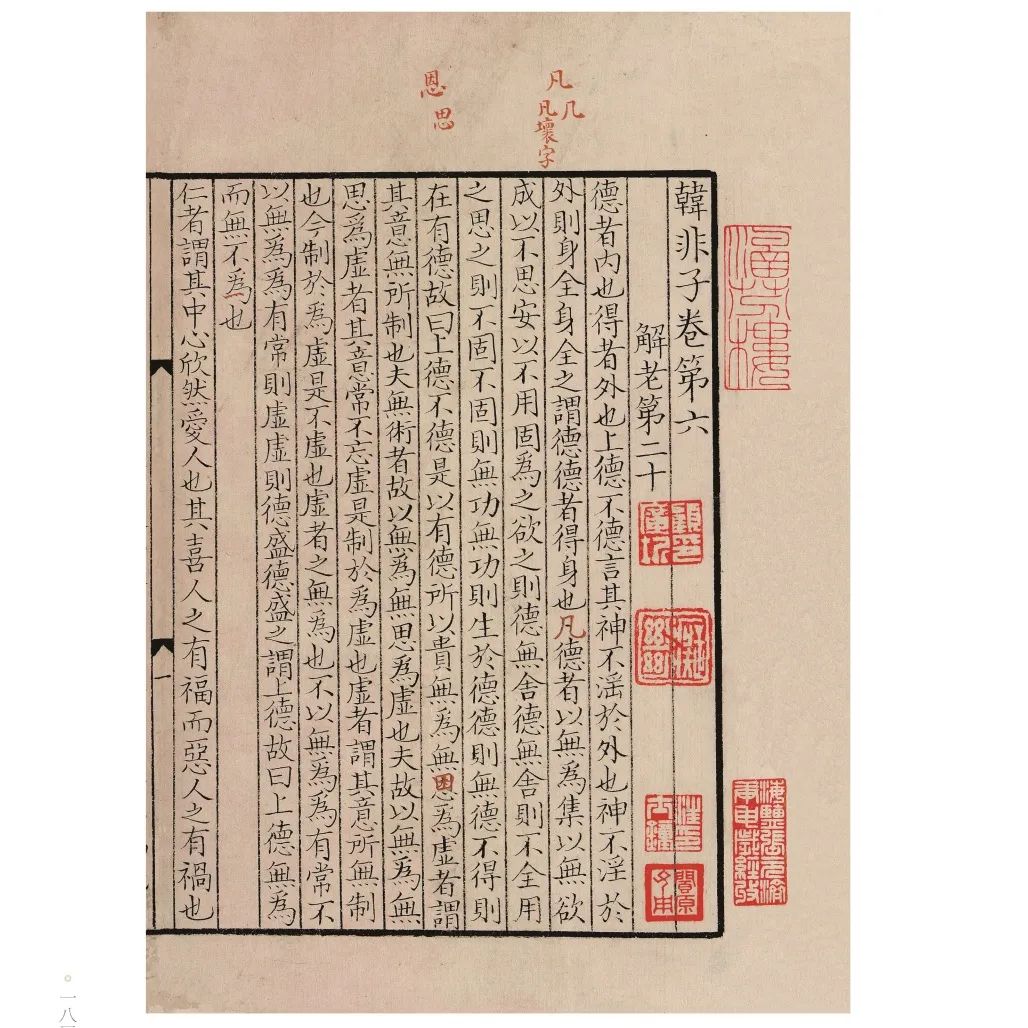 涵芬樓
海鹽張元濟庚申歲經收
凡几
凡壞字
恩思
韓非子卷第六
解老第二十
汪士鐘印
閬原父用
德者內也得者外也上德不德言其神不滛於外也神不淫於
外則身全身全之謂德德者得身也凡德者以無為集以無欲
成以不思安以不用固為之欲之則德無舍德無舍則不全用
之思之則不固不固則無功無功則生於德德則無德不得則
在有德故曰上德不德是以有德所以貴無為無恩為虛者謂
其意無所制也夫無術者故以無為無思為虛也夫故以無為無
思為虛者其意常不忘虛是制於為虛也虛者謂其意所無制
也今制於為虛是不虛也虛者之無為也不以無為為有常不
以無為為有常則虛虛則德盛德盛之謂上德故曰上德無為
而無不為也
仁者謂其中心欣然愛人也其喜人之有福而惡人之有禍也
一
一八